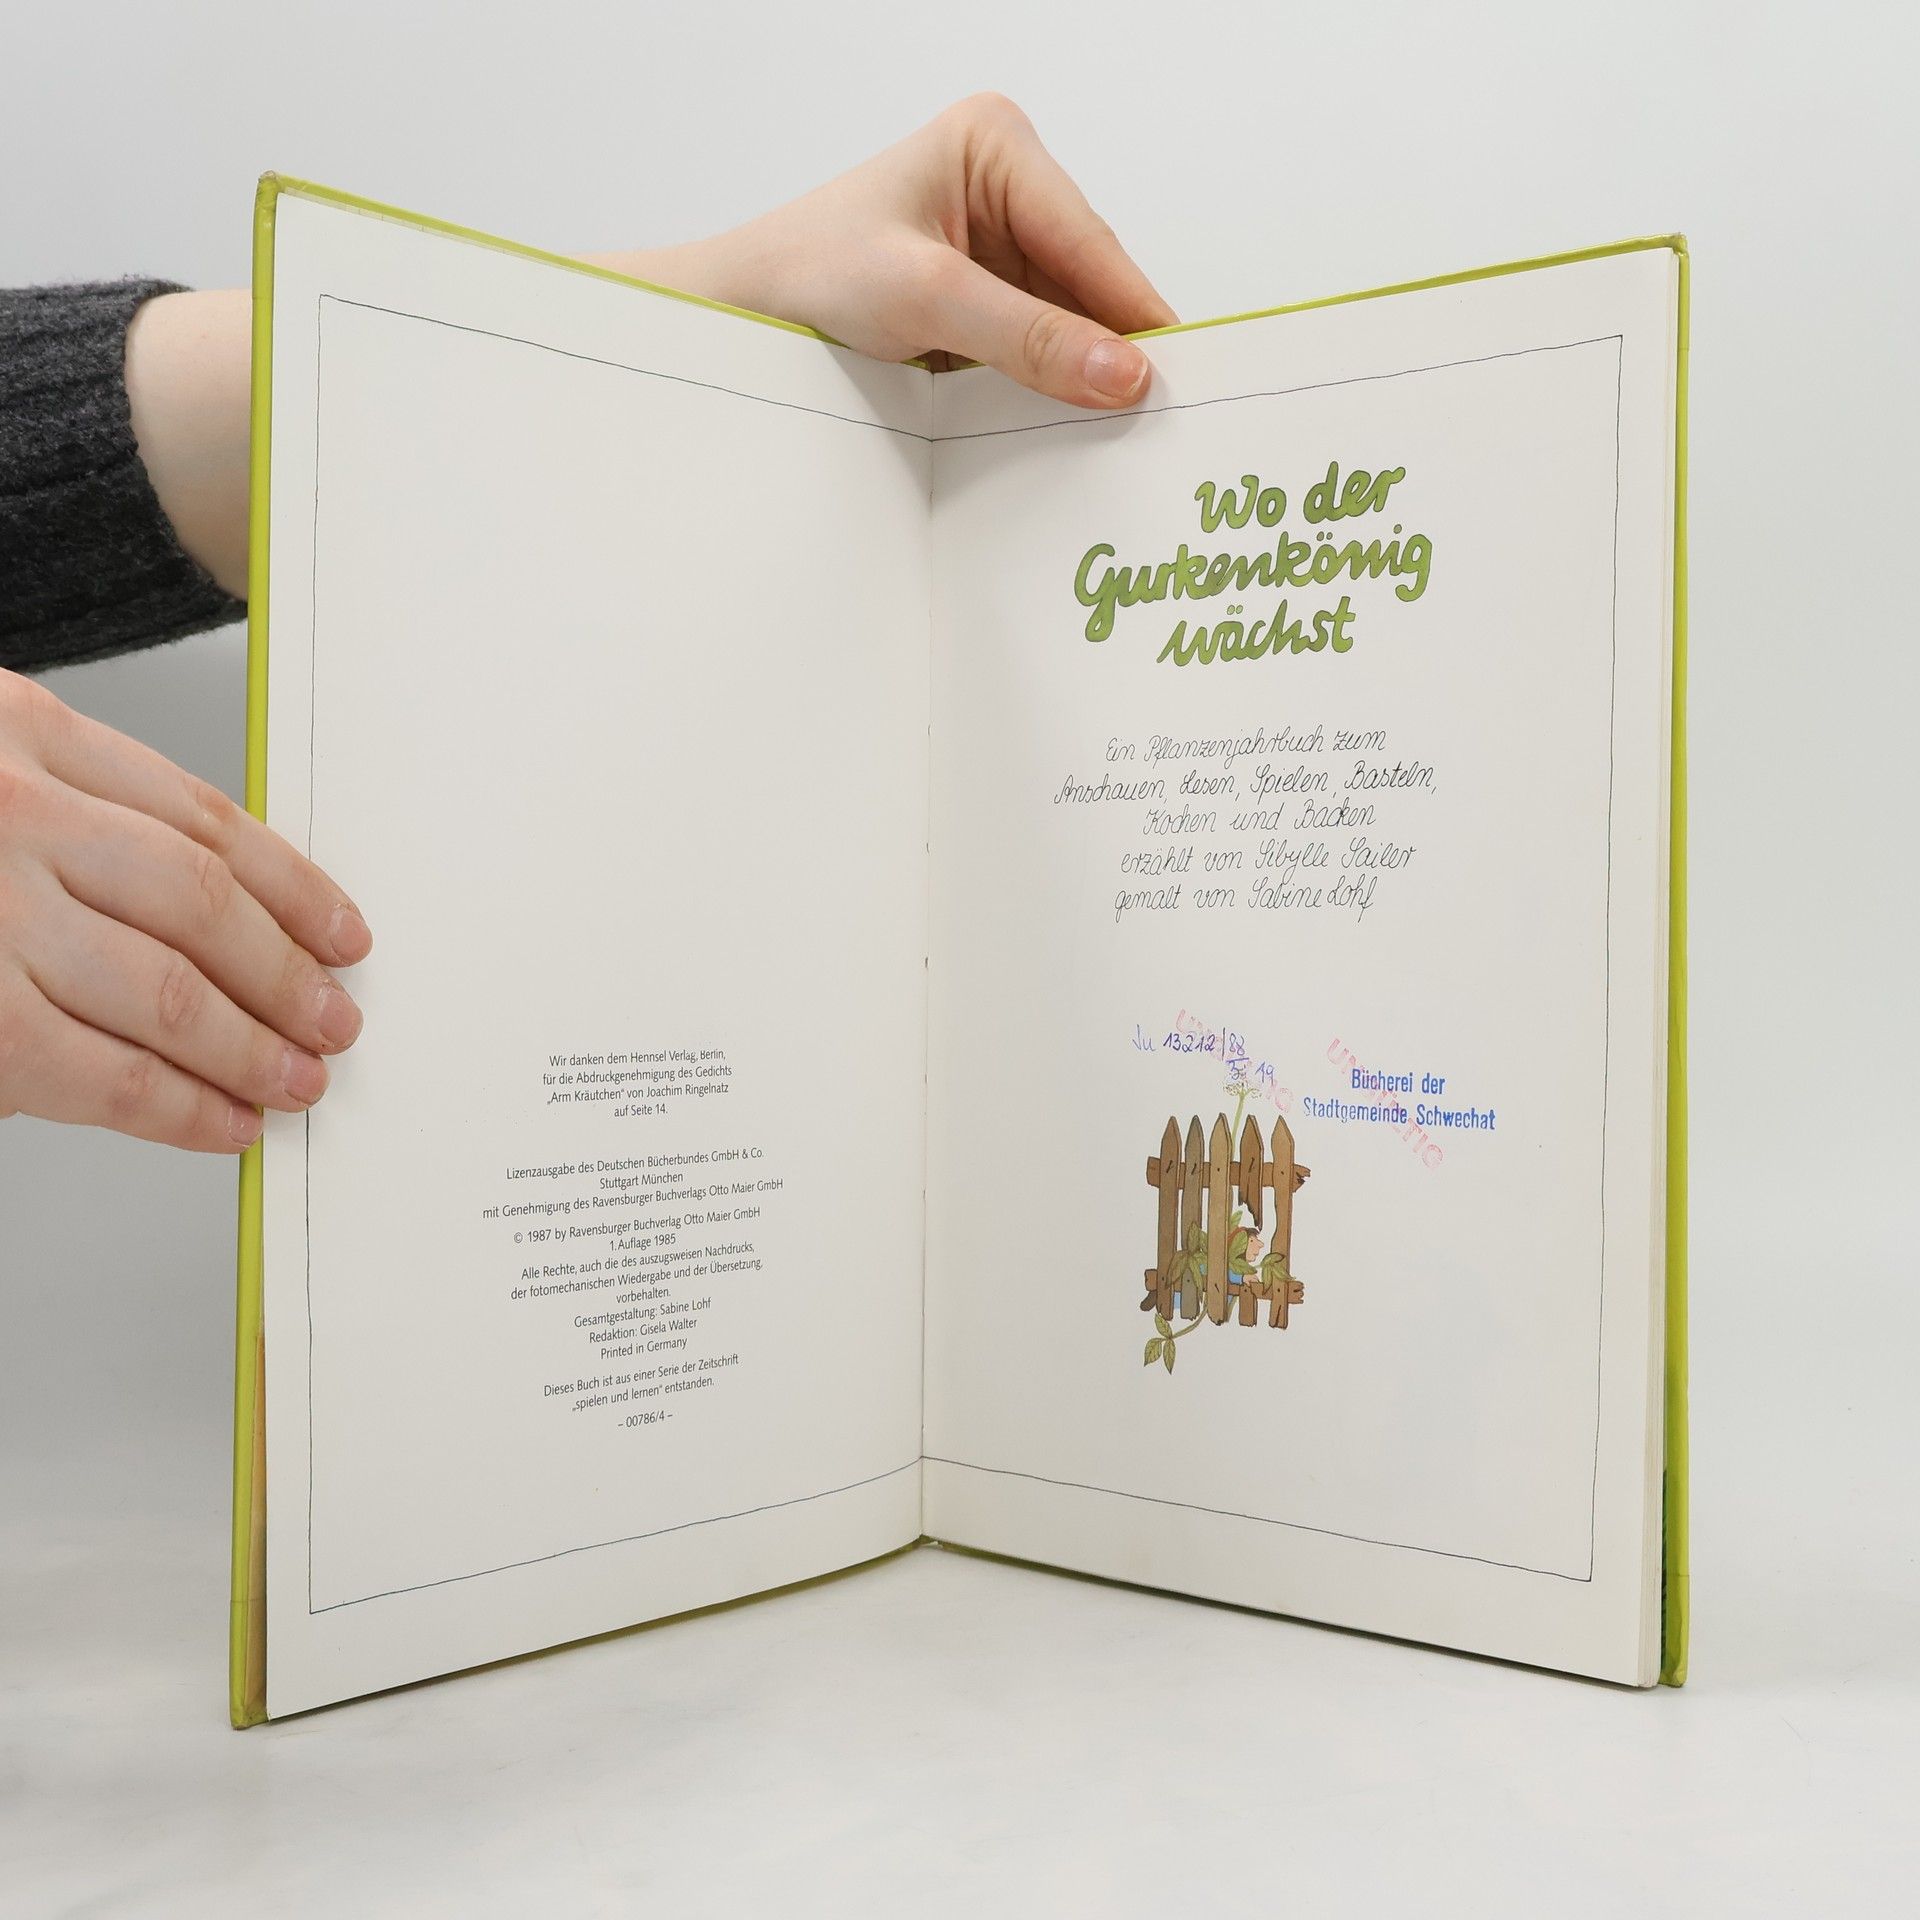 Wir danken dem Hennsel Verlag, Berlin,
für die Abdruckgenehmigung des Gedichts
„Arm Kräutchen“ von Joachim Ringelnatz
auf Seite 14.
Lizenzausgabe des Deutschen Bücherbundes GmbH & Co.
Stuttgart München
mit Genehmigung des Ravensburger Buchverlags Otto Maier GmbH
© 1987 by Ravensburger Buchverlag Otto Maier GmbH
1. Auflage 1985
Alle Rechte, auch die des auszugsweisen Nachdrucks,
der fotomechanischen Wiedergabe und der Übersetzung,
vorbehalten.
Gesamtgestaltung: Sabine Lohf
Redaktion: Gisela Walter
Printed in Germany
Dieses Buch ist aus einer Serie der Zeitschrift
„spielen und lernen“ entstanden.
– 00786/4 –
Wo der
Gurkenkönig
wächst
Ein Pflanzenjahrbuch zum
Anschauen, Lesen, Spielen, Basteln,
Kochen und Backen
erzählt von Sibylle Sailer
gemalt von Sabine Lohf
13212/88
19
UNGÜLTIG
UNGÜLTIG
Bücherei der
Stadtgemeinde Schwechat